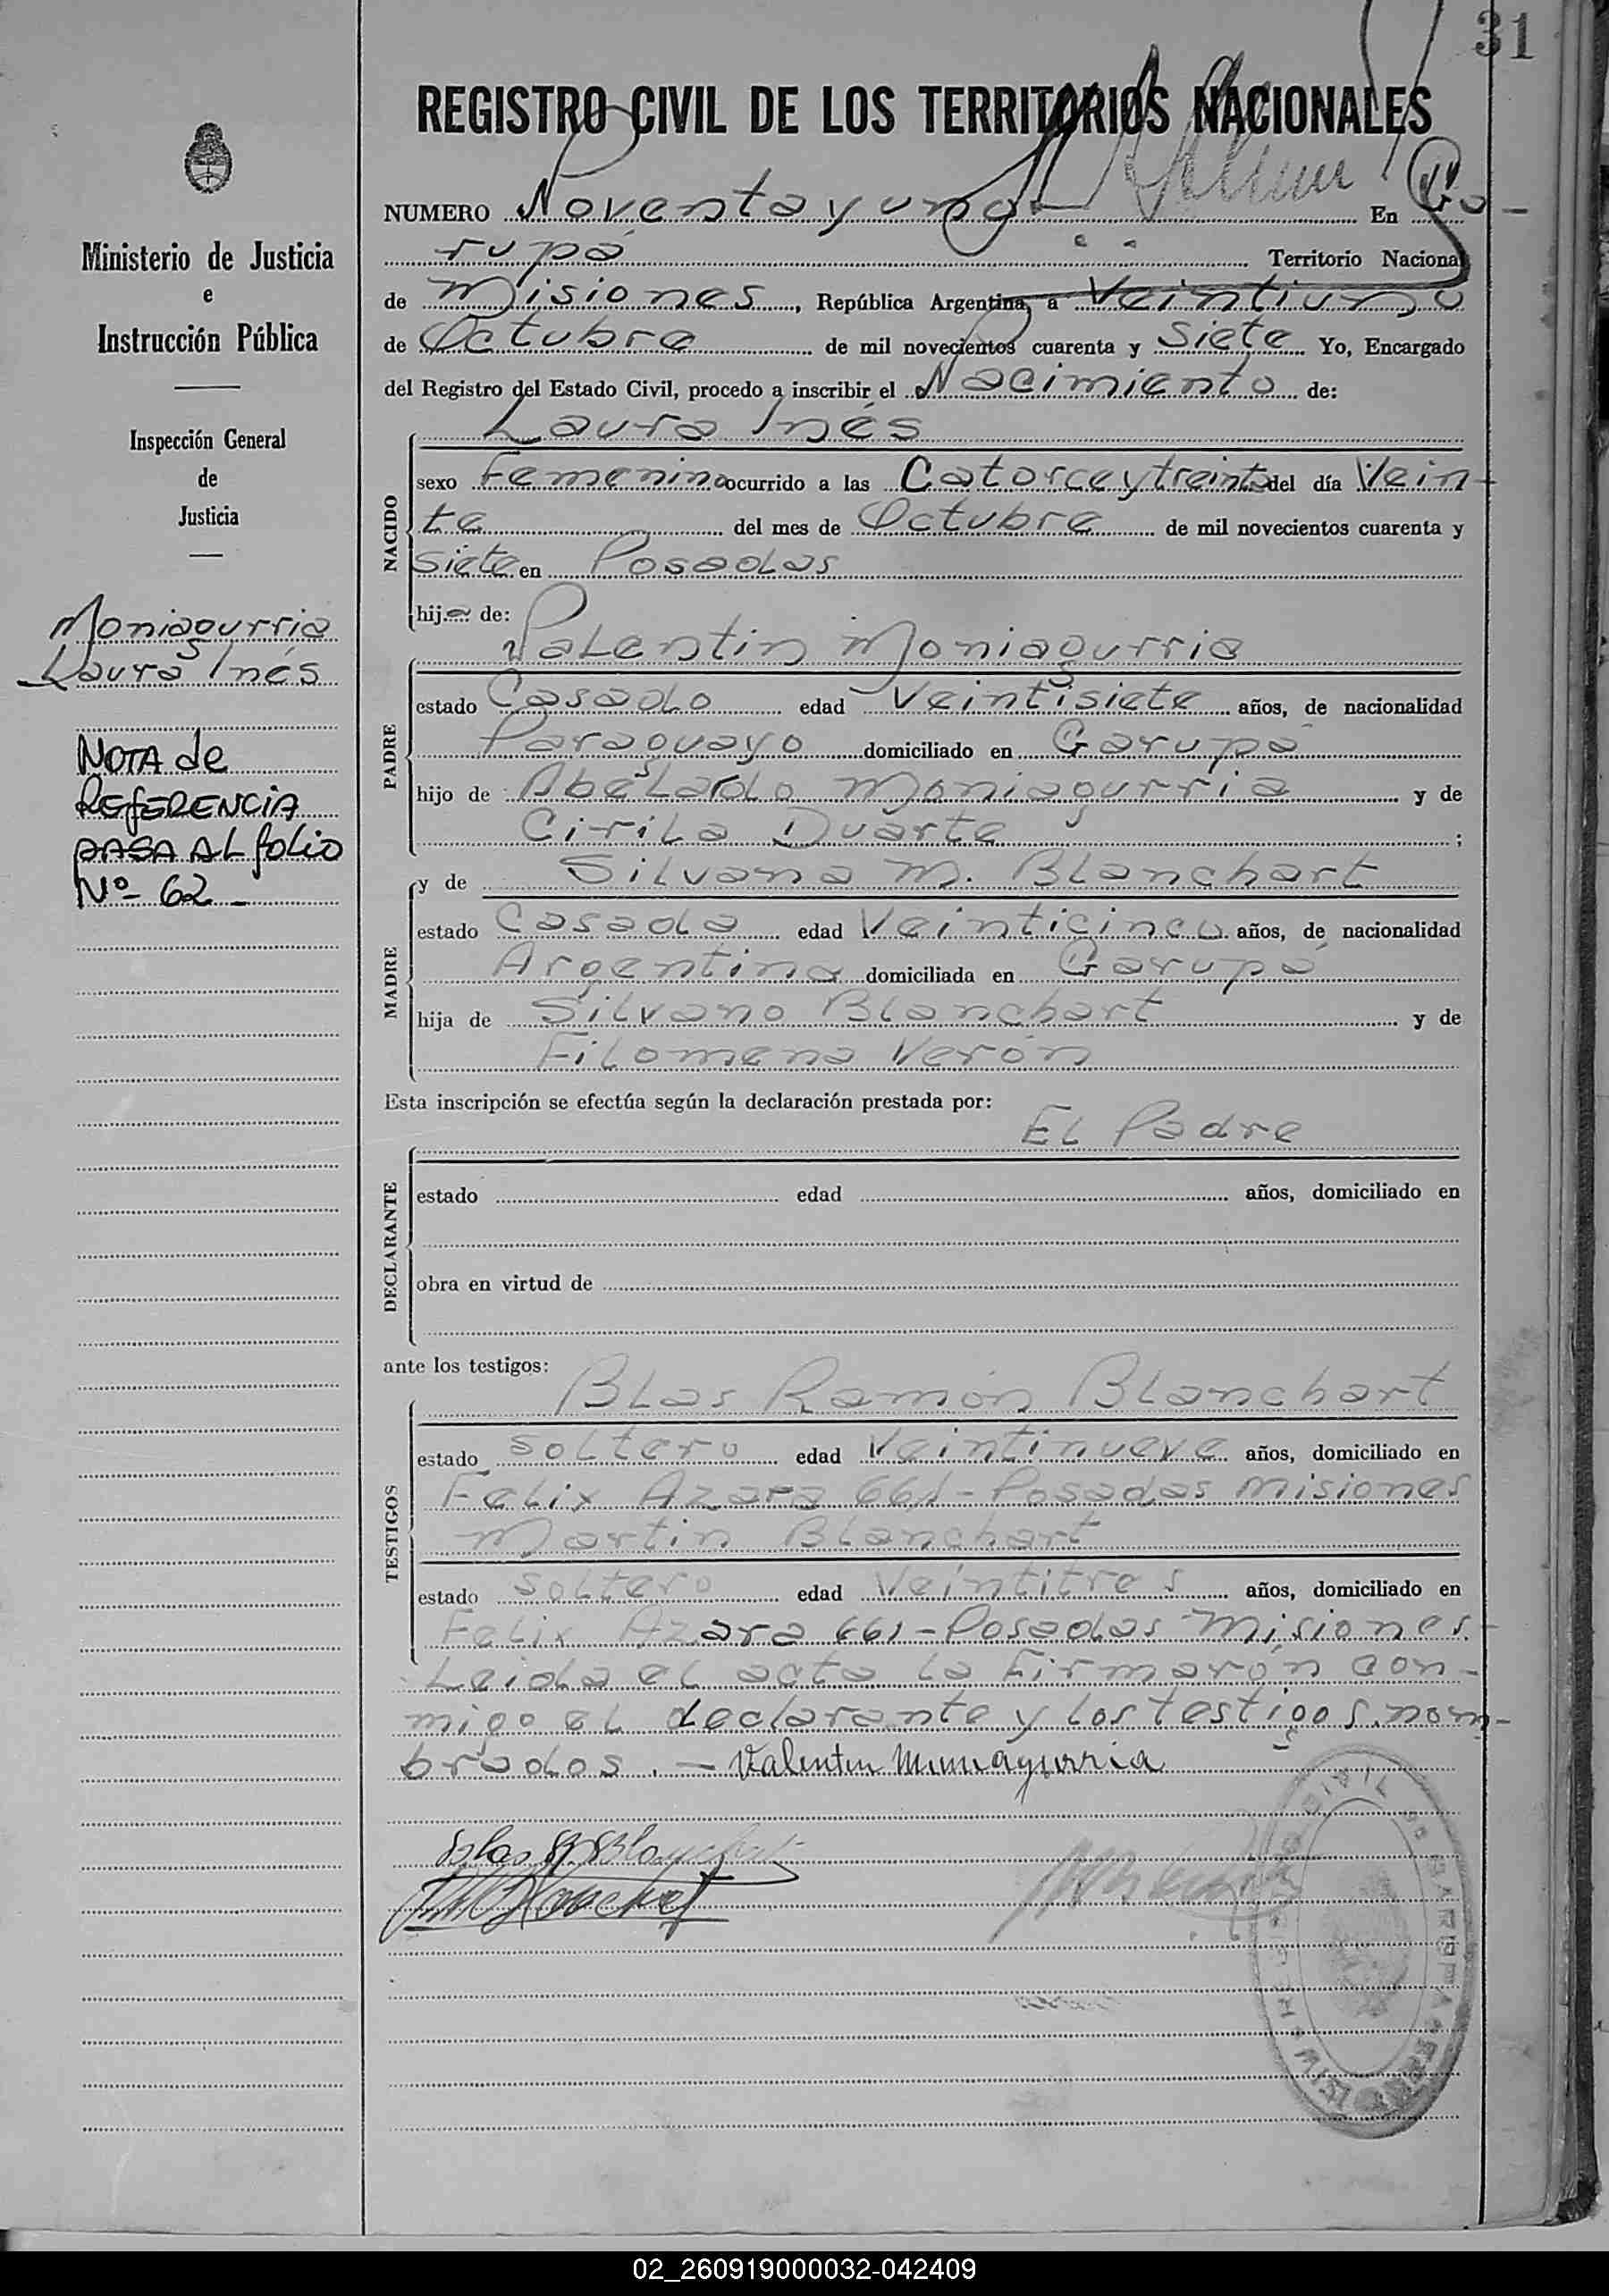 31
REGISTRO CIVIL DE LOS TERRITORIOS NACIONALES
NUMERO Noventa y uno En Ga-
rupá Territorio Nacional
de Misiones, República Argentina, a Veintiuno
de Octubre de mil novecientos cuarenta y siete Yo, Encargado
del Registro del Estado Civil, procedo a inscribir el Nacimiento de:
NACIDO
Laura Inés
sexo Femenino ocurrido a las Catorce y treinta del día Vein-
te del mes de Octubre de mil novecientos cuarenta y
siete en Posadas
hija de:
PADRE
Valentin Moniagurria
estado Casado edad Veintisiete años, de nacionalidad
Paraguayo domiciliado en Garupá
hijo de Abelardo Moniagurria y de
Cirila Duarte ;
MADRE
y de Silvana M. Blanchart
estado Casada edad Veinticinco años, de nacionalidad
Argentina domiciliada en Garupá
hija de Silvano Blanchart y de
Filomena Verón
Esta inscripción se efectúa según la declaración prestada por:
El Padre
DECLARANTE
estado edad años, domiciliado en
obra en virtud de
ante los testigos:
TESTIGOS
Blas Ramón Blanchart
estado soltero edad Veintinueve años, domiciliado en
Felix Azara 661 - Posadas Misiones
Martin Blanchart
estado soltero edad Veintitres años, domiciliado en
Felix Azara 661 - Posadas Misiones.
Leida el acta la firmarón con-
migo el declarante y los testigos nom-
brados. - Valentin Muniagurria
Ministerio de Justicia
e
Instrucción Pública
Inspección General
de
Justicia
Moniagurria
Laura Inés
NOTA de
REFERENCIA
PASA AL folio
Nº 62 -
02_260919000032-042409